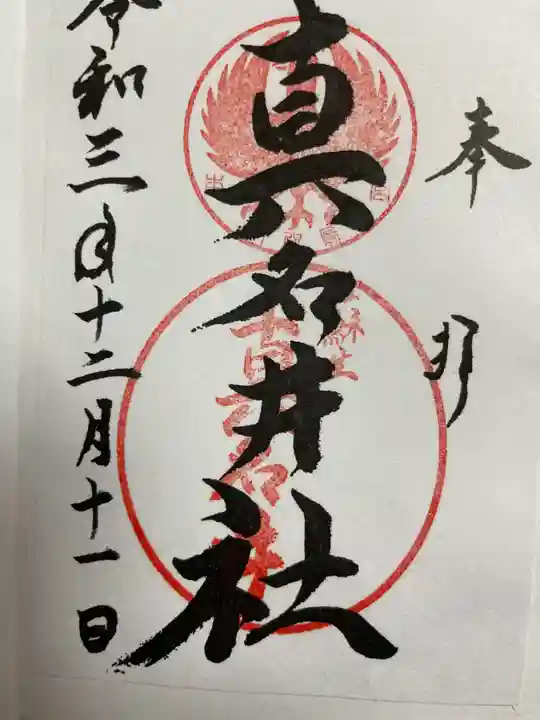 奉拝
真名井社
令和三年十二月十一日